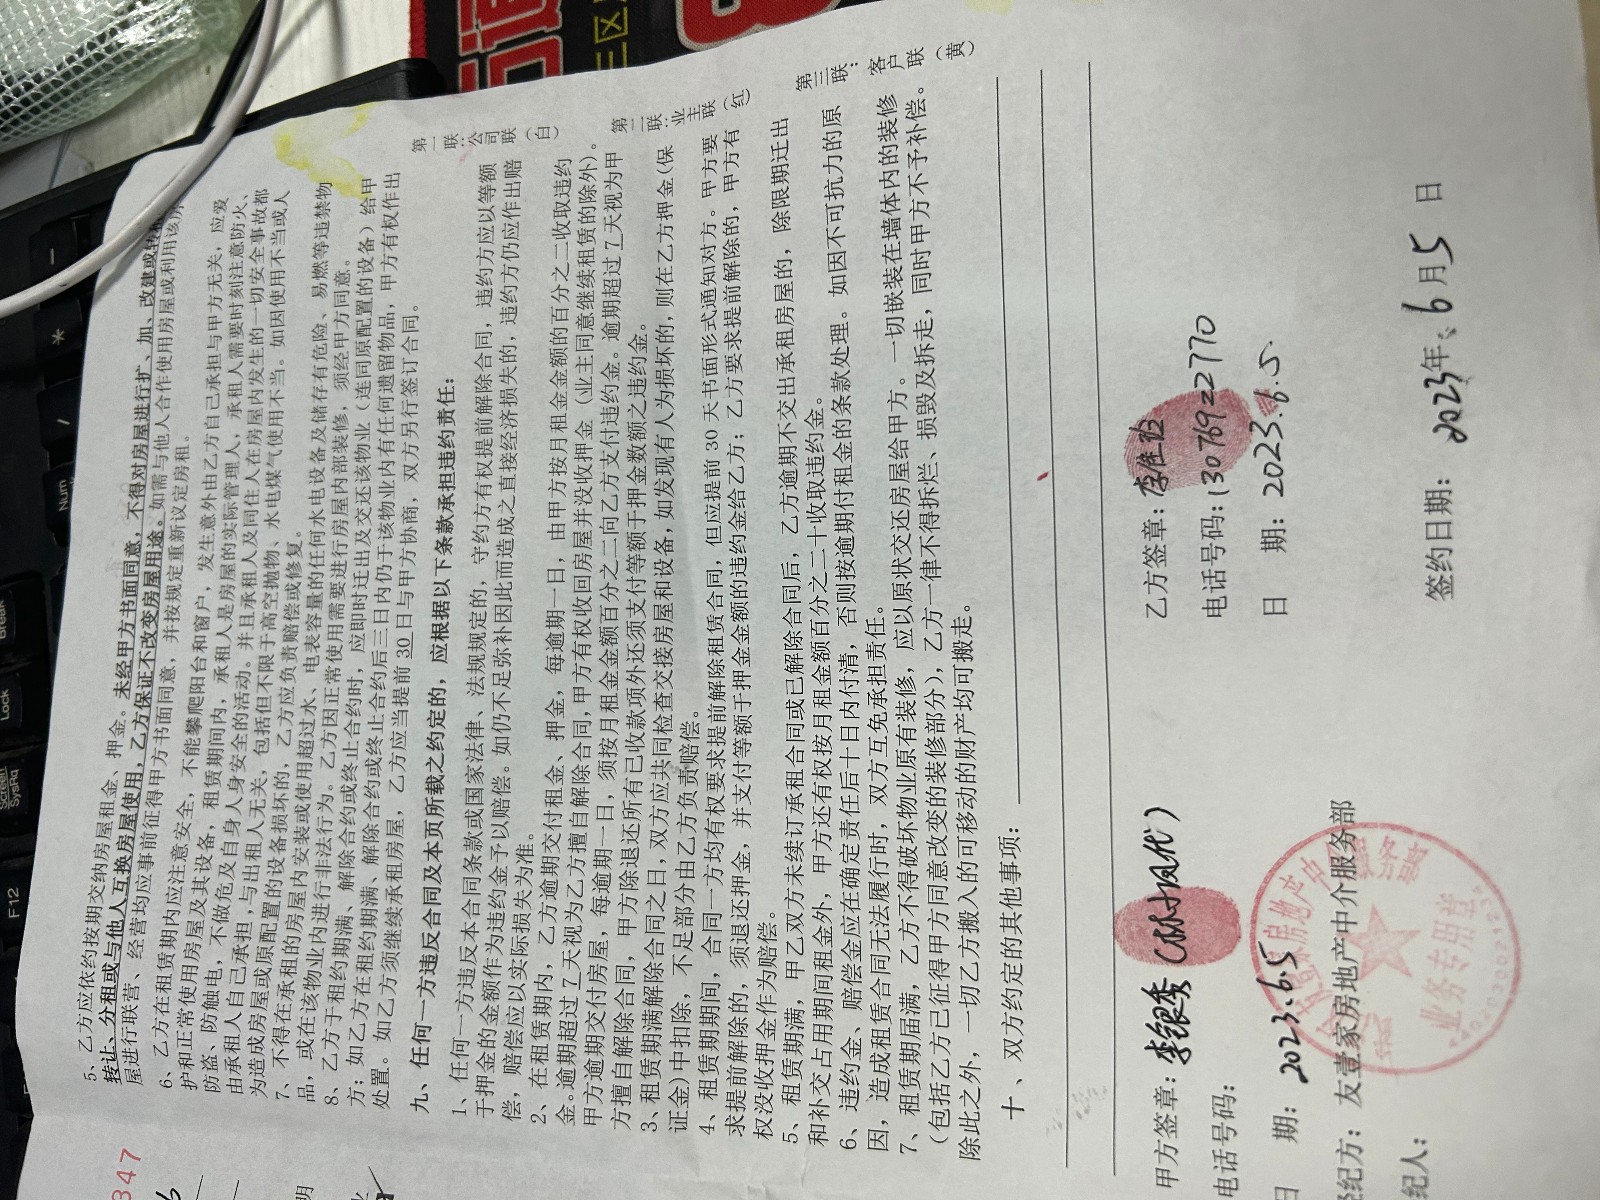 5、乙方应依约按期交纳房屋租金、押金。未经甲方书面同意，不得对房屋进行扩、加、改建或转
转让、分租或与他人互换房屋使用，乙方保证不改变房屋用途。如需与他人合作使用房屋或利用该房
屋进行联营、经营均应事前征得甲方书面同意，并按规定重新议定房租。
6、乙方在租赁期内应注意安全，不能攀爬阳台和窗户，发生意外由乙方自己承担与甲方无关，应爱
护和正常使用房屋及其设备，租赁期间内，承租人是房屋的实际管理人，承租人需要时刻注意防火、
防盗、防触电，不做危及自身人身安全的活动。并且承租人及同住人在房屋内发生的一切安全事故都
由承租人自己承担，与出租人无关，包括但不限于高空抛物、水电煤气使用不当。如因使用不当或人
为造成房屋或原配置的设备损坏的，乙方应负责赔偿或修复。
7、不得在承租的房屋内安装或使用超过水、电表容量的任何水电设备及储存有危险、易燃等违禁物
品，或在该物业内进行非法行为。乙方因正常使用需要进行房屋内部装修，须经甲方同意。
8、乙方于租约期满、解除合约或终止合约时，应即时迁出及交还该物业（连同原配置的设备）给甲
方；如乙方在租约期满、解除合约或终止合约后三日内仍于该物业内有任何遗留物品，甲方有权作出
处置。如乙方须继续承租房屋，乙方应当提前 30 日与甲方协商，双方另行签订合同。
九、任何一方违反合同及本页所载之约定的，应根据以下条款承担违约责任：
1、任何一方违反本合同条款或国家法律、法规规定的，守约方有权提前解除合同，违约方应以等额
于押金的金额作为违约金予以赔偿。如仍不足弥补因此而造成之直接经济损失的，违约方仍应作出赔
偿，赔偿应以实际损失为准。
2、在租赁期内，乙方逾期交付租金、押金，每逾期一日，由甲方按月租金金额的百分之二收取违约
金。逾期超过 7 天视为乙方擅自解除合同，甲方有权收回房屋并没收押金（业主同意继续租赁的除外）。
甲方逾期交付房屋，每逾期一日，须按月租金金额百分之二向乙方支付违约金。逾期超过 7 天视为甲
方擅自解除合同，甲方除退还所有已收款项外还须支付等额于押金数额之违约金。
3、租赁期满解除合同之日，双方应共同检查交接房屋和设备，如发现有人为损坏的，则在乙方押金（保
证金）中扣除，不足部分由乙方负责赔偿。
4、租赁期期间，合同一方均有权要求提前解除租赁合同，但应提前 30 天书面形式通知对方。甲方要
求提前解除的，须退还押金，并支付等额于押金金额的违约金给乙方；乙方要求提前解除的，甲方有
权没收押金作为赔偿。
5、租赁期满，甲乙双方未续订承租合同或已解除合同后，乙方逾期不交出承租房屋的，除限期迁出
和补交占用期间租金外，甲方还有权按月租金额百分之二十收取违约金。
6、违约金、赔偿金应在确定责任后十日内付清，否则按逾期付租金的条款处理。如因不可抗力的原
因，造成租赁合同无法履行时，双方互免承担责任。
7、租赁期届满，乙方不得破坏物业原有装修，应以原状交还房屋给甲方。一切嵌装在墙体内的装修
（包括乙方已征得甲方同意改变的装修部分），乙方一律不得拆烂、损毁及拆走，同时甲方不予补偿。
除此之外，一切乙方搬入的可移动的财产均可搬走。
第一联：公司联（白）
第二联：业主联（红）
第三联：客户联（黄）
十、双方约定的其他事项：
甲方签章：李银香
电话号码：
日 期：2023.6.5
经纪方：友壹家房地产中介服务部
纪人：
业务专用章
乙方签章：李佳
电话号码：13076922770
日 期：2023.6.5.
签约日期：2023年6月5日
347
F12
Screen
SysRq
Lock
Break
Num